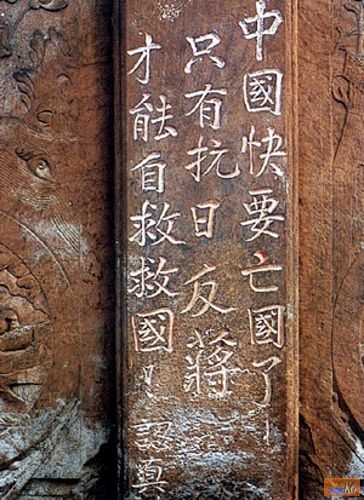 中國快要亡國了
只有抗日反蔣
才能自救救國！
認真